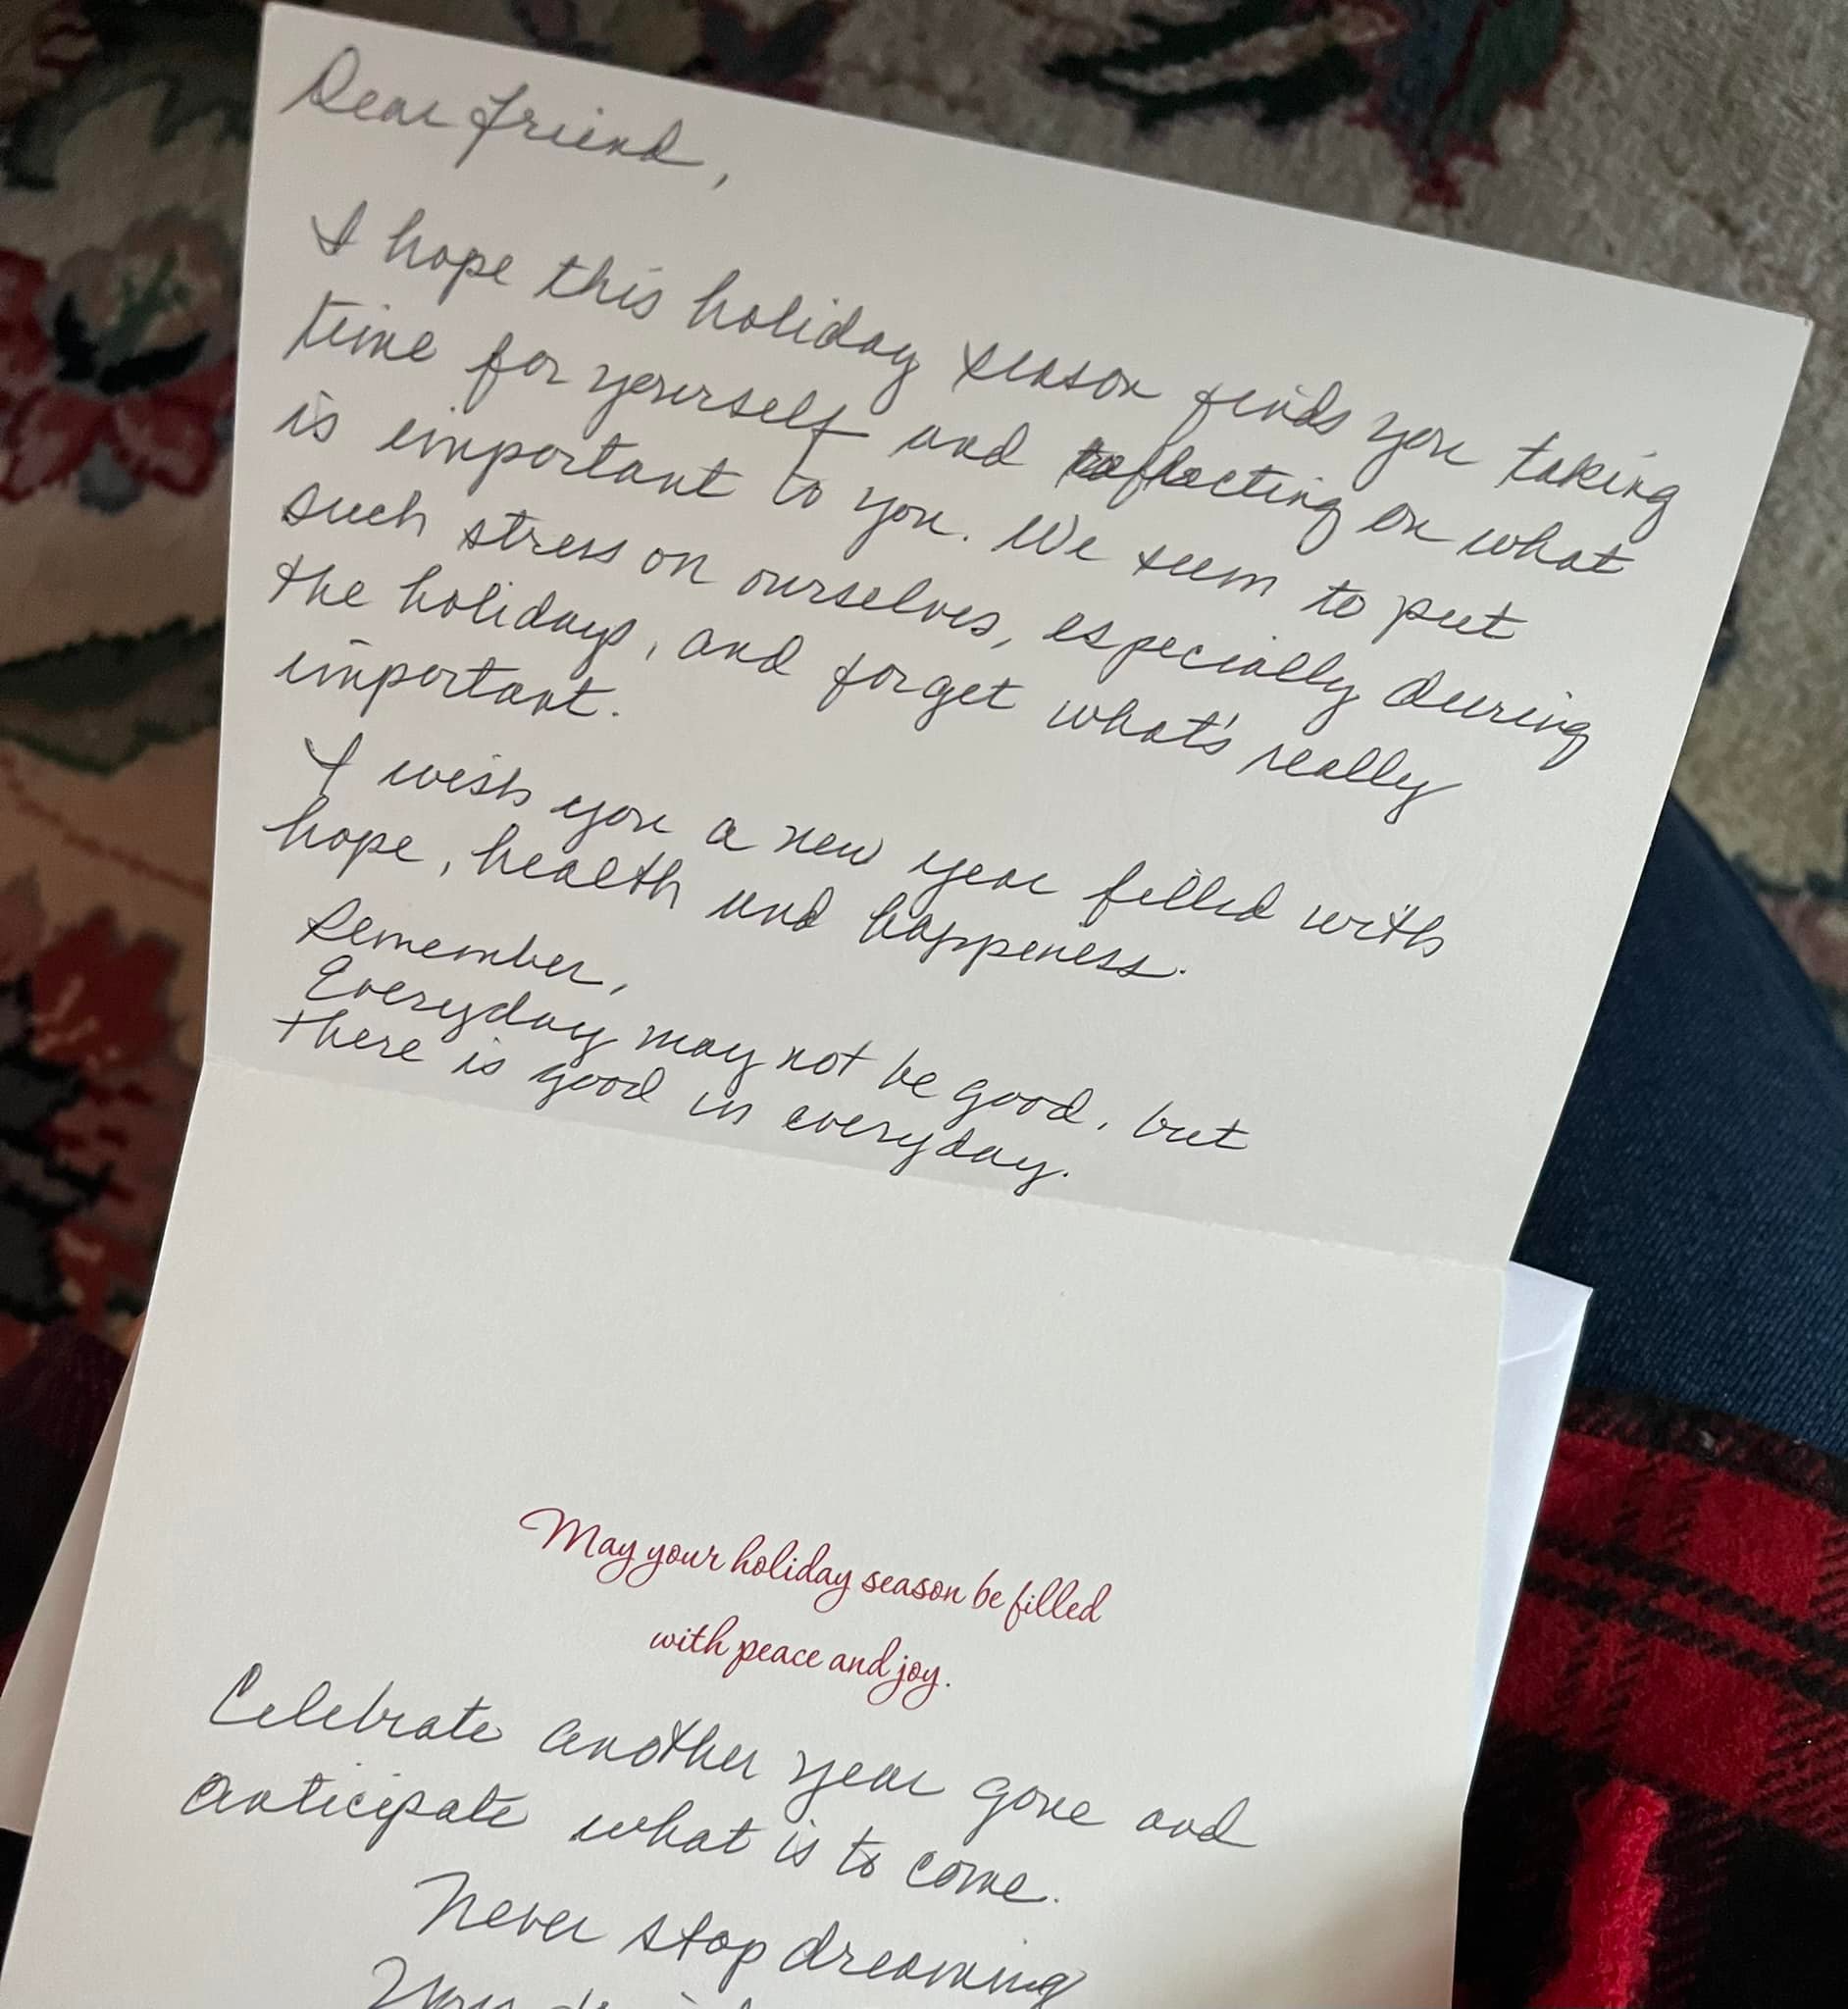 Dear friend,
I hope this holiday season finds you taking
time for yourself and reflecting on what
is important to you. We seem to put
such stress on ourselves, especially during
the holidays, and forget what's really
important.
I wish you a new year filled with
hope, health and happiness.
Remember,
Everyday may not be good, but
there is good in everyday.
May your holiday season be filled
with peace and joy.
Celebrate another year gone and
anticipate what is to come.
Never stop dreaming